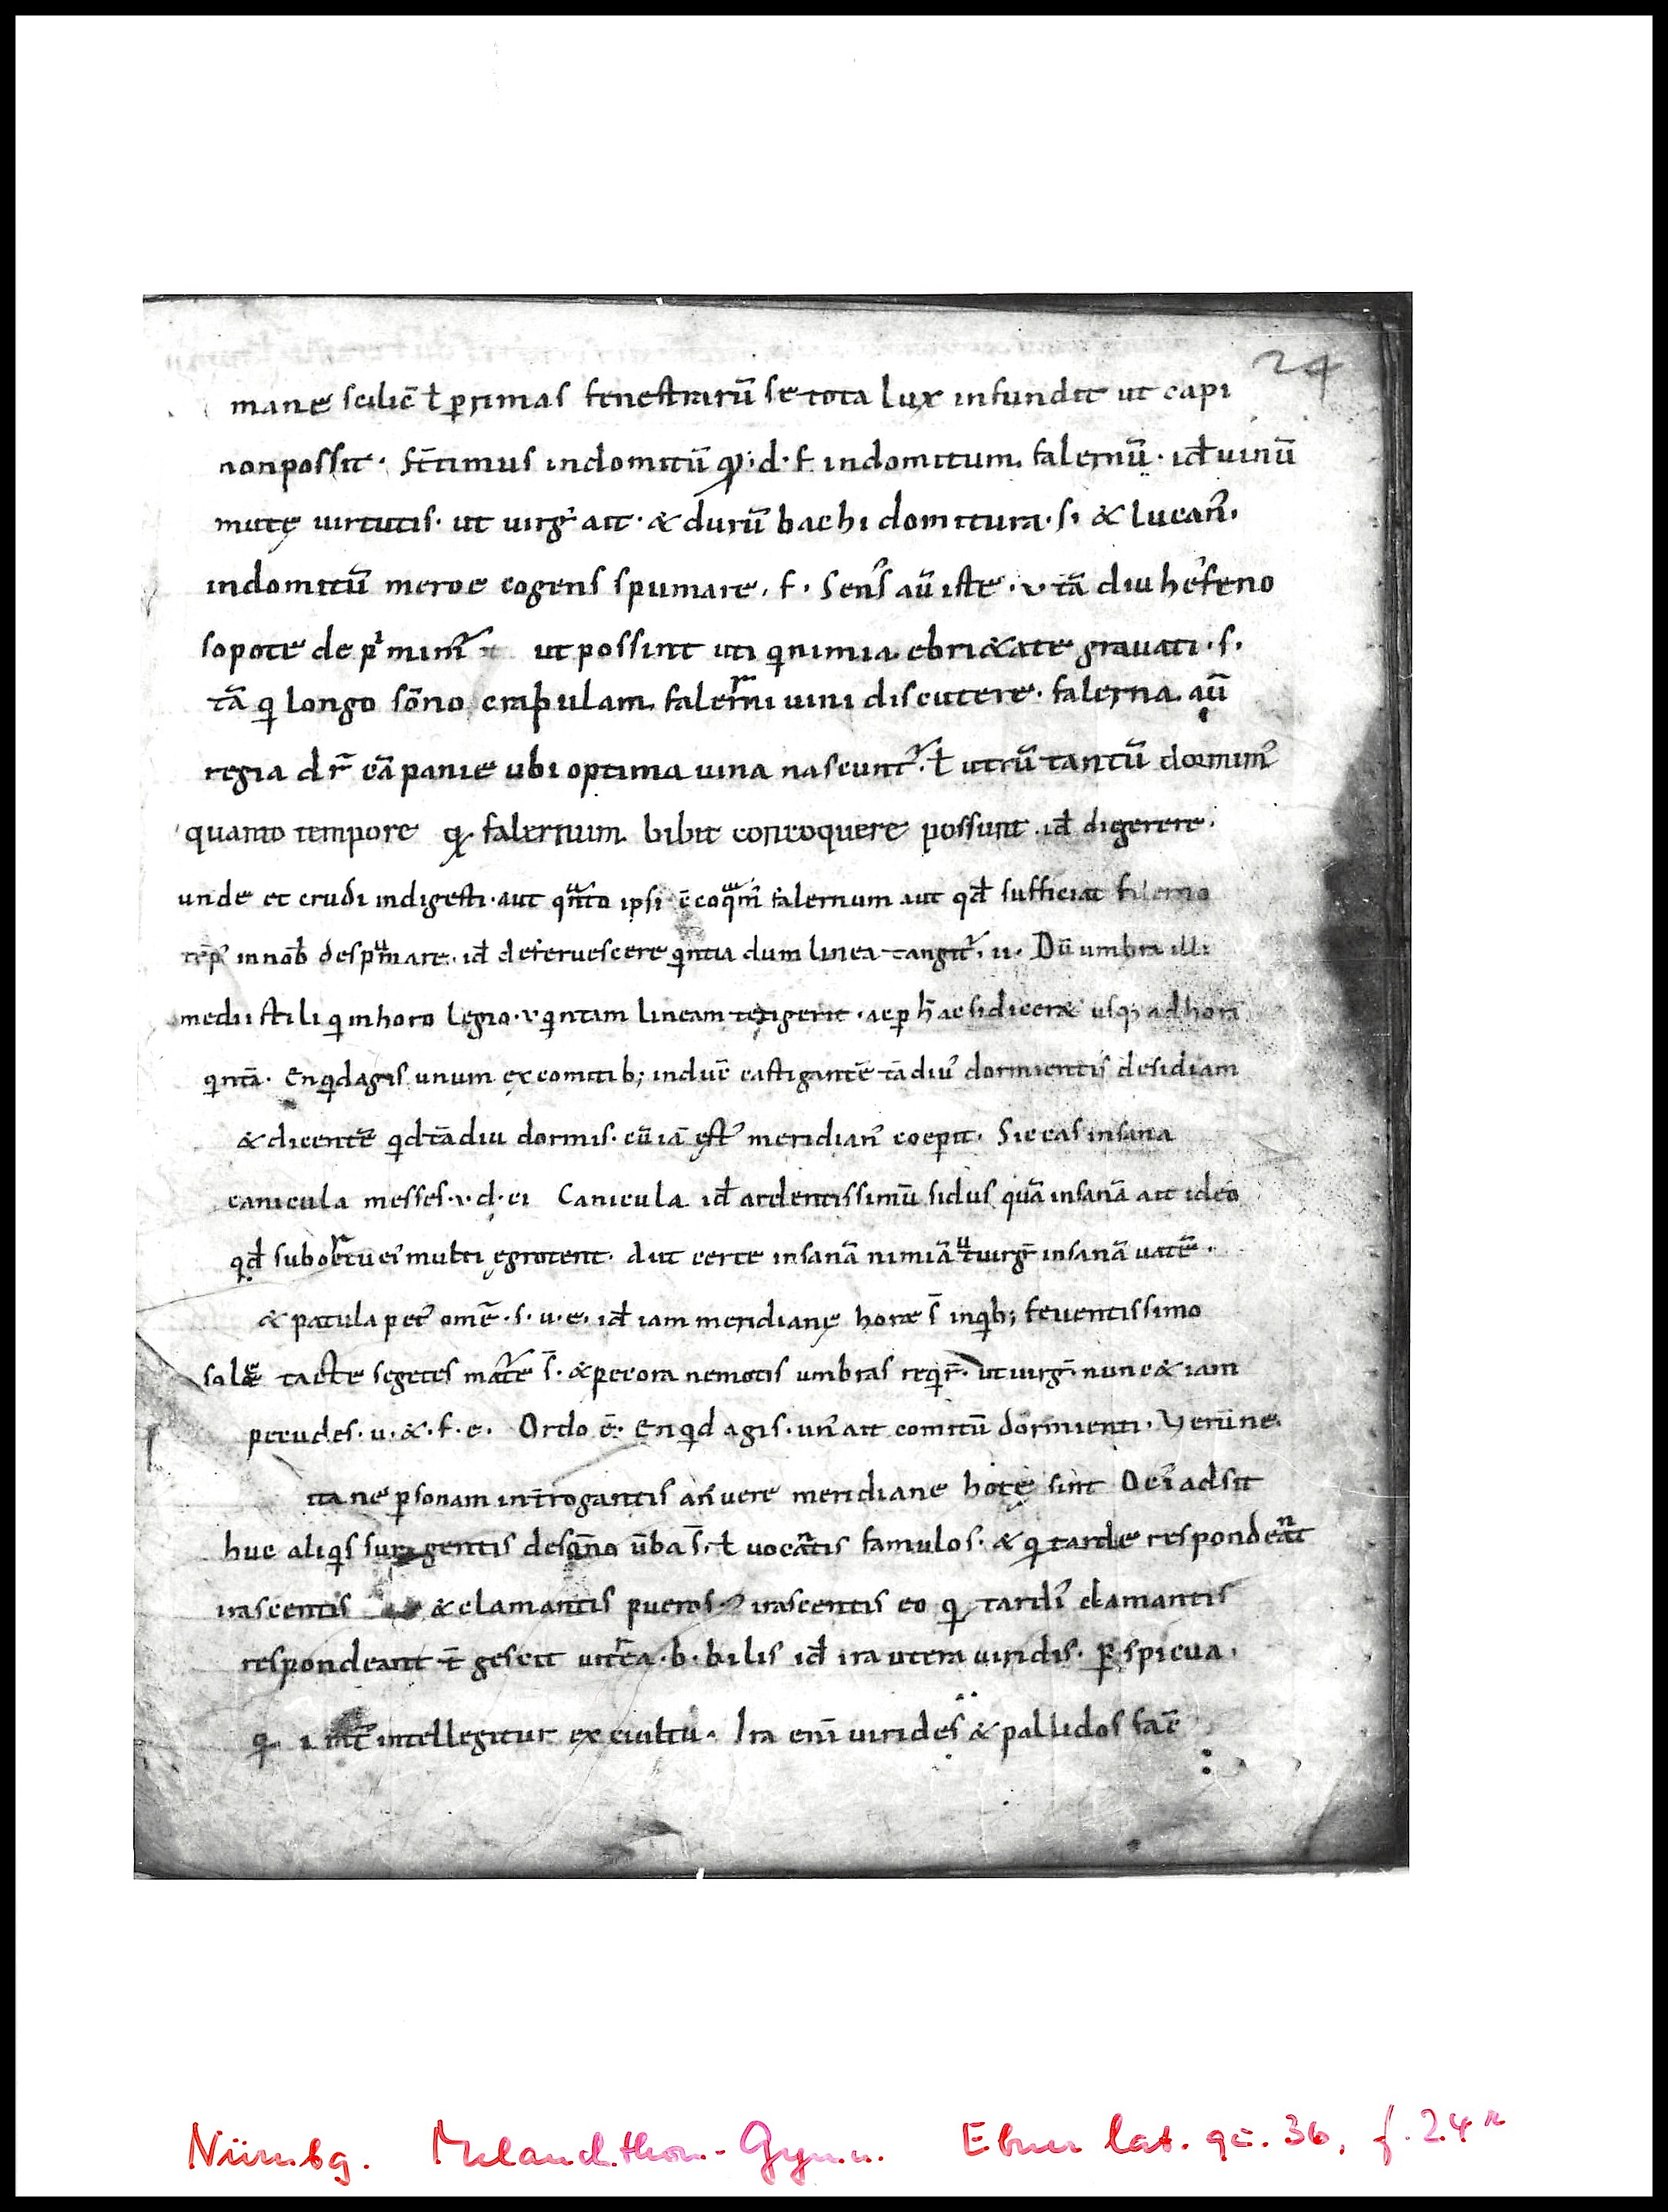 24
mane scilic̄ ł ꝑ rimas fenestrarū se tota lux infundit ut capi
non possit. st̄timus indomitū ꝙ · d · f indomitum falernū · id̵ uinū
mutę uirtutis · ut uirg̓ ait · & durū bachi domitura · s · & lucan̓.
indomitū meroe cogens spumare · f · Sens̓ aū iste · v tā diu
sopore de p̓ mim̓ ut possint uti qi nimia ebri&ate grauati · s ·
tā qi longo sōno crapulam falerni uini discutere · falerna aū
regia dr̄ cā panie ubi optima uina nascunt᷑ · ł utrū tantū dormim᷒
quanto tempore falernum bibit concoquere possunt · id̵ digerere ·
unde et crudi indigesti · aut ipsi falernum aut qd̵ sufficiat falerno
id̵ deferuescere qinta dum linea tangit᷑ · u · Dū umbra illi
medii stili qi in horo legio · v qintam lineam tetigerit · ac ꝑ h̄ ac si dicer& usqꝫ ad horā
qintā · En qid agis unum ex comitib; induc̄ castigantē tā diu᷒ dormientis desidiam
& dicentē qid tā diu dormis · cū iā ęst᷒ meridian᷒ coepit · Siccas insana
canicula messes · v · d · ei Canicula id̵ ardentissimū sidus quā insanā ait ideo
qd̵ sub ortu ei᷒ multi ęgrotent · Aut certe insanā nimiā ut uirg̓ insanā uatē ·
& patula pec᷒ omē · s · u · e · id̵ iam meridianę horę s̄ in qib; feuentissimo
sole tacte segetes mat᷑e s̄ · & pecora nemoris umbras reqir̄ · ut uirg̓ nunc & iam
pecudes · u · & · f · e · Ordo ē · En qid agis · un᷒ ait comitū dormienti · Verū ne
ita ne ꝑsonam int̄rogantis an uere meridiane horę sint Oci᷒ adsit
huc aliqis surgentis ūba s̄ · ł uocātis famulos · & qi tarde respondeānt
irascentis & clamantis pueros irascentis eo qi tardi᷒ clamantis
respondeant t̄ gescit uitrea · b · bilis id̵ ira uitrea uiridis · ꝑspicua ·
intellegitur ex cultu · Ira enī uirides & pallidos fac̄
Nürnbg. Melanchthon-Gymn. Ebner lat. qu. 36, f. 24r